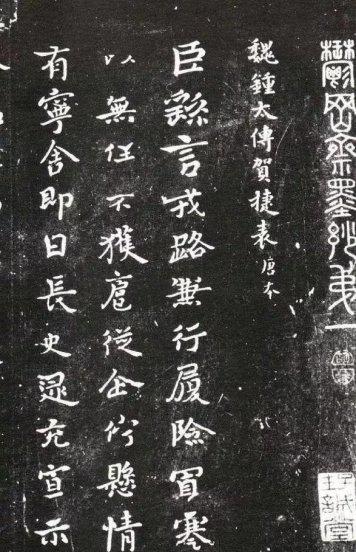 鬱岡齋墨妙弟一
魏鍾太傅賀捷表 唐本
臣繇言戎路兼行履險冒寒
以無任不獲扈從企佇懸情
有寧舍即日長史逯充宣示